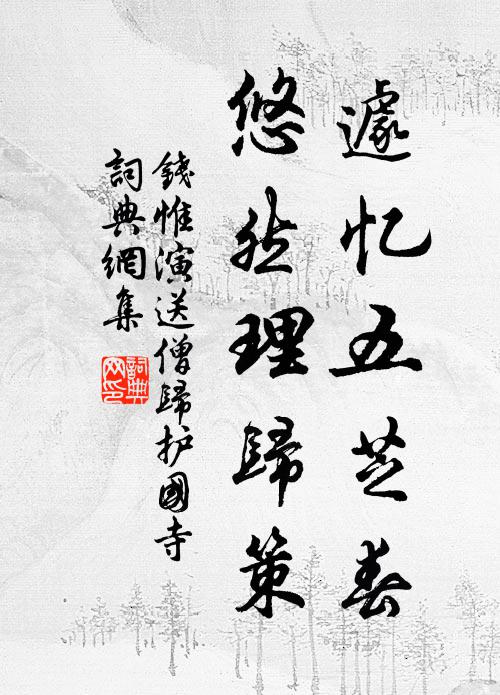 遽忆五芝春
悠然理歸策
錢惟演送僧歸护國寺
詞典網集
詞典網印